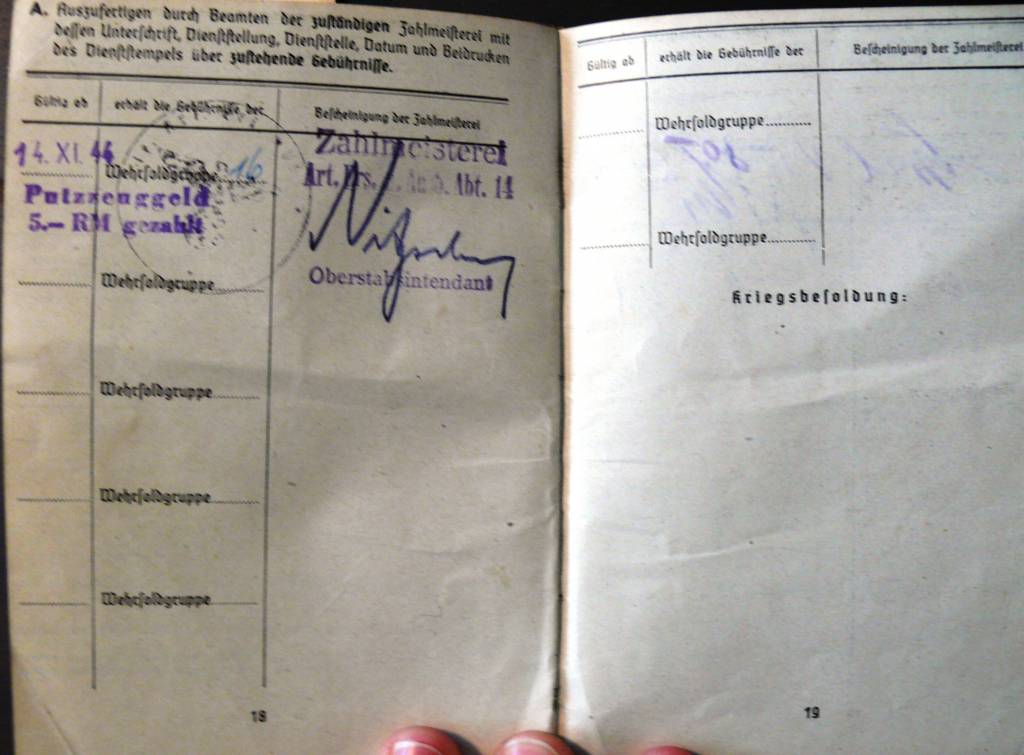 A. Auszufertigen durch Beamten der zuständigen Zahlmeisterei mit
dessen Unterschrift, Dienststellung, Dienststelle, Datum und Beidrucken
des Dienststempels über zustehende Gebührnisse.
Gültig ab erhält die Gebührnisse der Bescheinigung der Zahlmeisterei
14. XI. 44 Wehrsoldgruppe 16 Zahlmeisterei
Putzzeuggeld Art. Ers. Abt. 14
5.– RM gezahlt
Oberstabsintendant
Wehrsoldgruppe
Wehrsoldgruppe
Wehrsoldgruppe
Wehrsoldgruppe
18
Gültig ab erhält die Gebührnisse der Bescheinigung der Zahlmeisterei
Wehrsoldgruppe
Wehrsoldgruppe
Kriegsbesoldung:
19